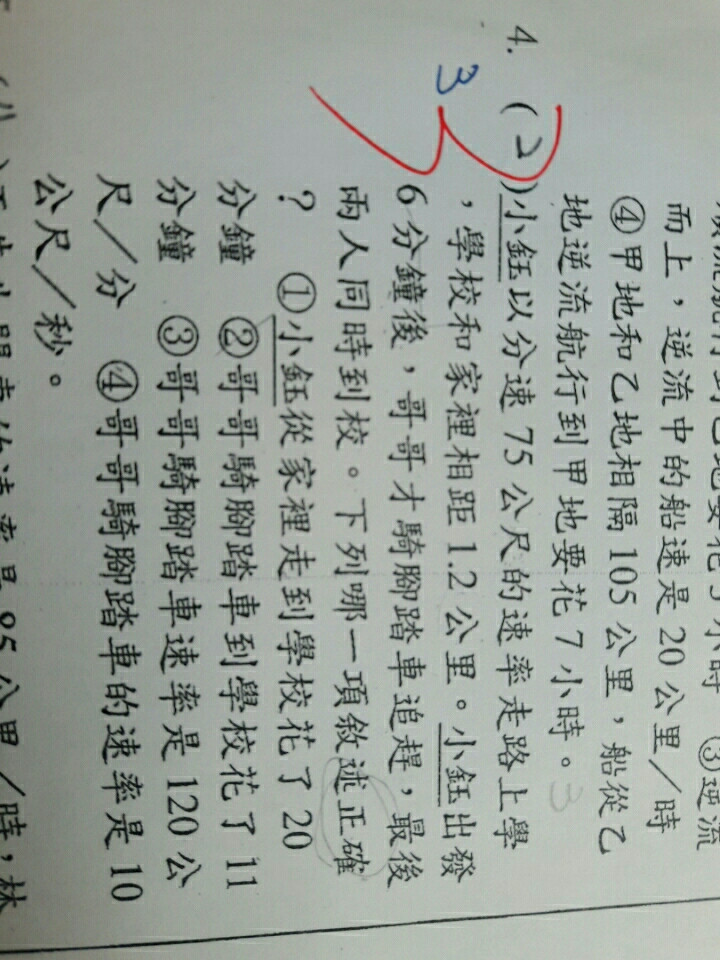 而上，逆流中的船速是 20 公里／時
④甲地和乙地相隔 105 公里，船從乙
地逆流航行到甲地要花 7 小時。 3
4. ( 2 )小鈺以分速 75 公尺的速率走路上學
3
，學校和家裡相距 1.2 公里。小鈺出發
6 分鐘後，哥哥才騎腳踏車追趕，最後
兩人同時到校。下列哪一項敘述正確
？ ①小鈺從家裡走到學校花了 20
分鐘 ②哥哥騎腳踏車到學校花了 11
分鐘 ③哥哥騎腳踏車速率是 120 公
尺／分 ④哥哥騎腳踏車的速率是 10
公尺／秒。
95 公里／時，林